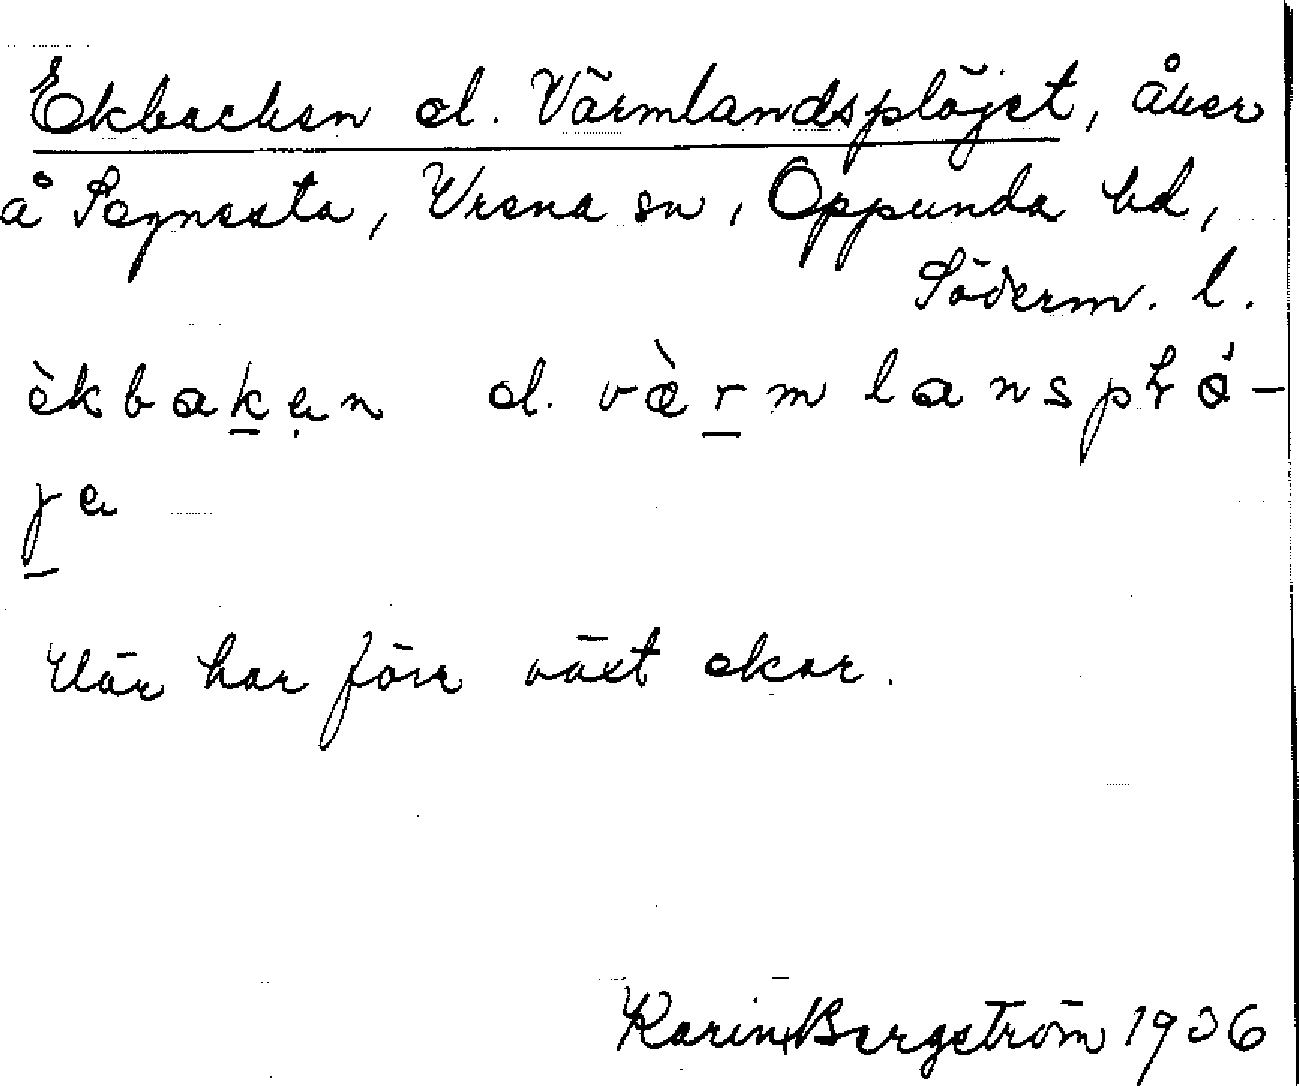 Ekbacken el. Värmlandsplöjet, åker
å Segnesta, Vrena sn, Oppunda hd,
Söderm. l.
èkbaken el. væ̀rmlanspɫǿ-
je
Här har förr växt ekar.
Karin Bergström 1936